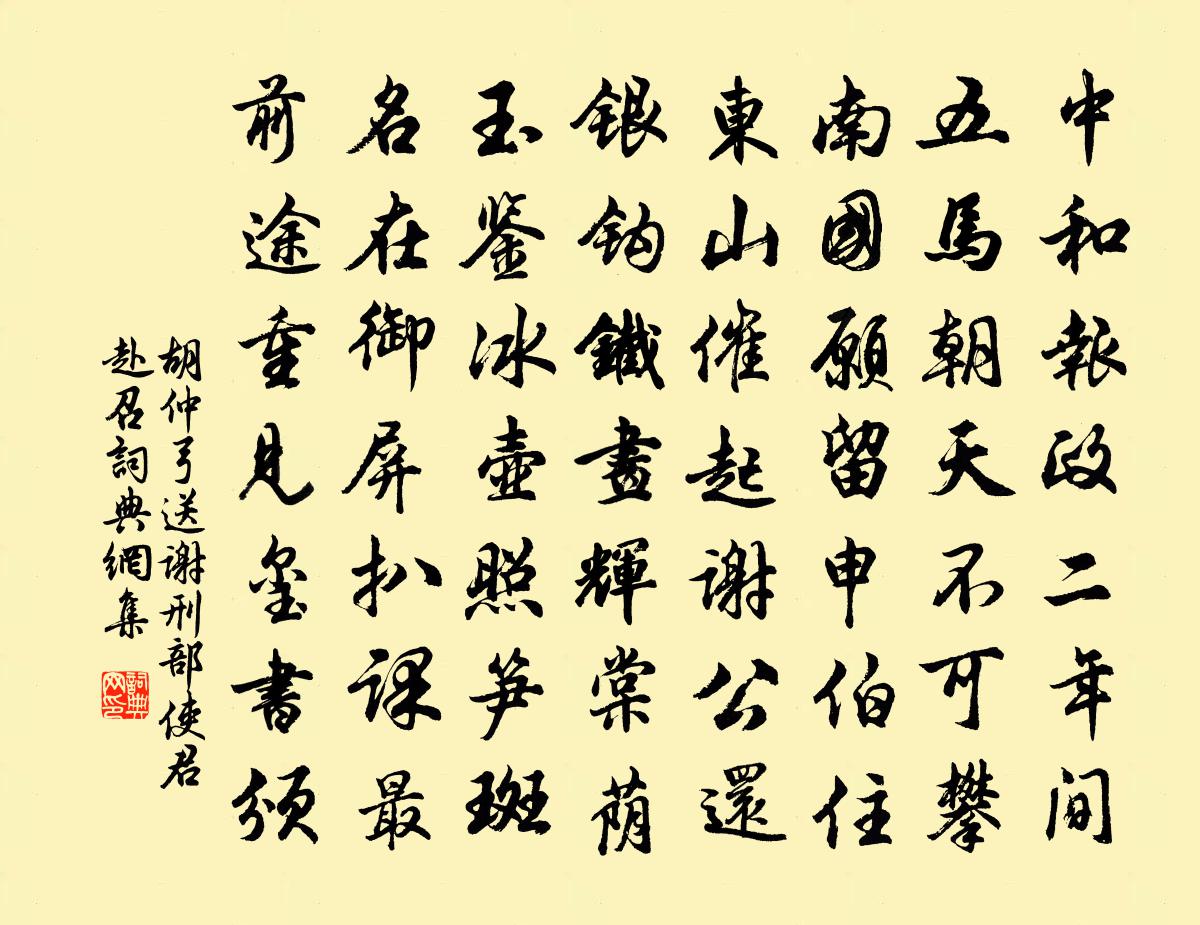 中和報政二年間
五馬朝天不可攀
南國願留申伯住
東山催起謝公還
銀鈎鐵畫輝棠蔭
玉鑒冰壺照笋斑
名在御屏扒課最
前途重見璽書頒
胡仲弓送謝刑部使君
赴召詞典網集
詞典网印